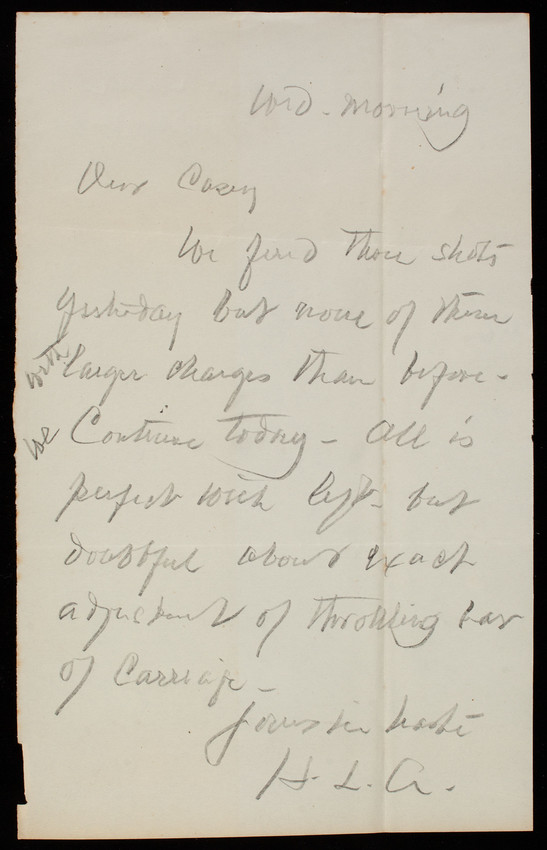 Wed. Morning
Dear Casey
We fired three shots
yesterday but none of them
with larger charges than before -
We Continue today - All is
perfect with lift - but
doubtful about exact
adjustment of throttling bar
of Carriage -
Yours in haste
H. L. A.